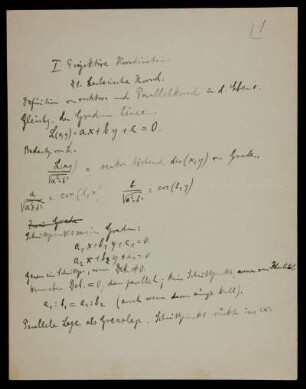 1
I Projektive Koordinaten.
§1. Cartesische Koord.
Definition von rechtw. und Parallelkoord. in d. Ebene.
Gleichg. der Graden Linie.
L(x,y) = ax + by + c = 0.
Bedeutg. von L.
L(x,y) / √a²+b² = Abstand des (x,y) von Graden.
a / √a²+b² = cos (L, x) b / √a²+b² = cos (L, y)
Schnittpunkt zweier Graden:
a₁x + b₁y + c₁ = 0
a₂x + b₂y + c₂ = 0
Genau ein Schnittpkt., wenn Det. ≠ 0.
wenn Det. = 0, dann parallel; kein Schnittpunkt, ausser
a₁ : b₁ = a₂ : b₂ (auch wenn dann einige Null).
Parallele Lage als Grenzlage. Schnittpunkt rückt ins ∞.